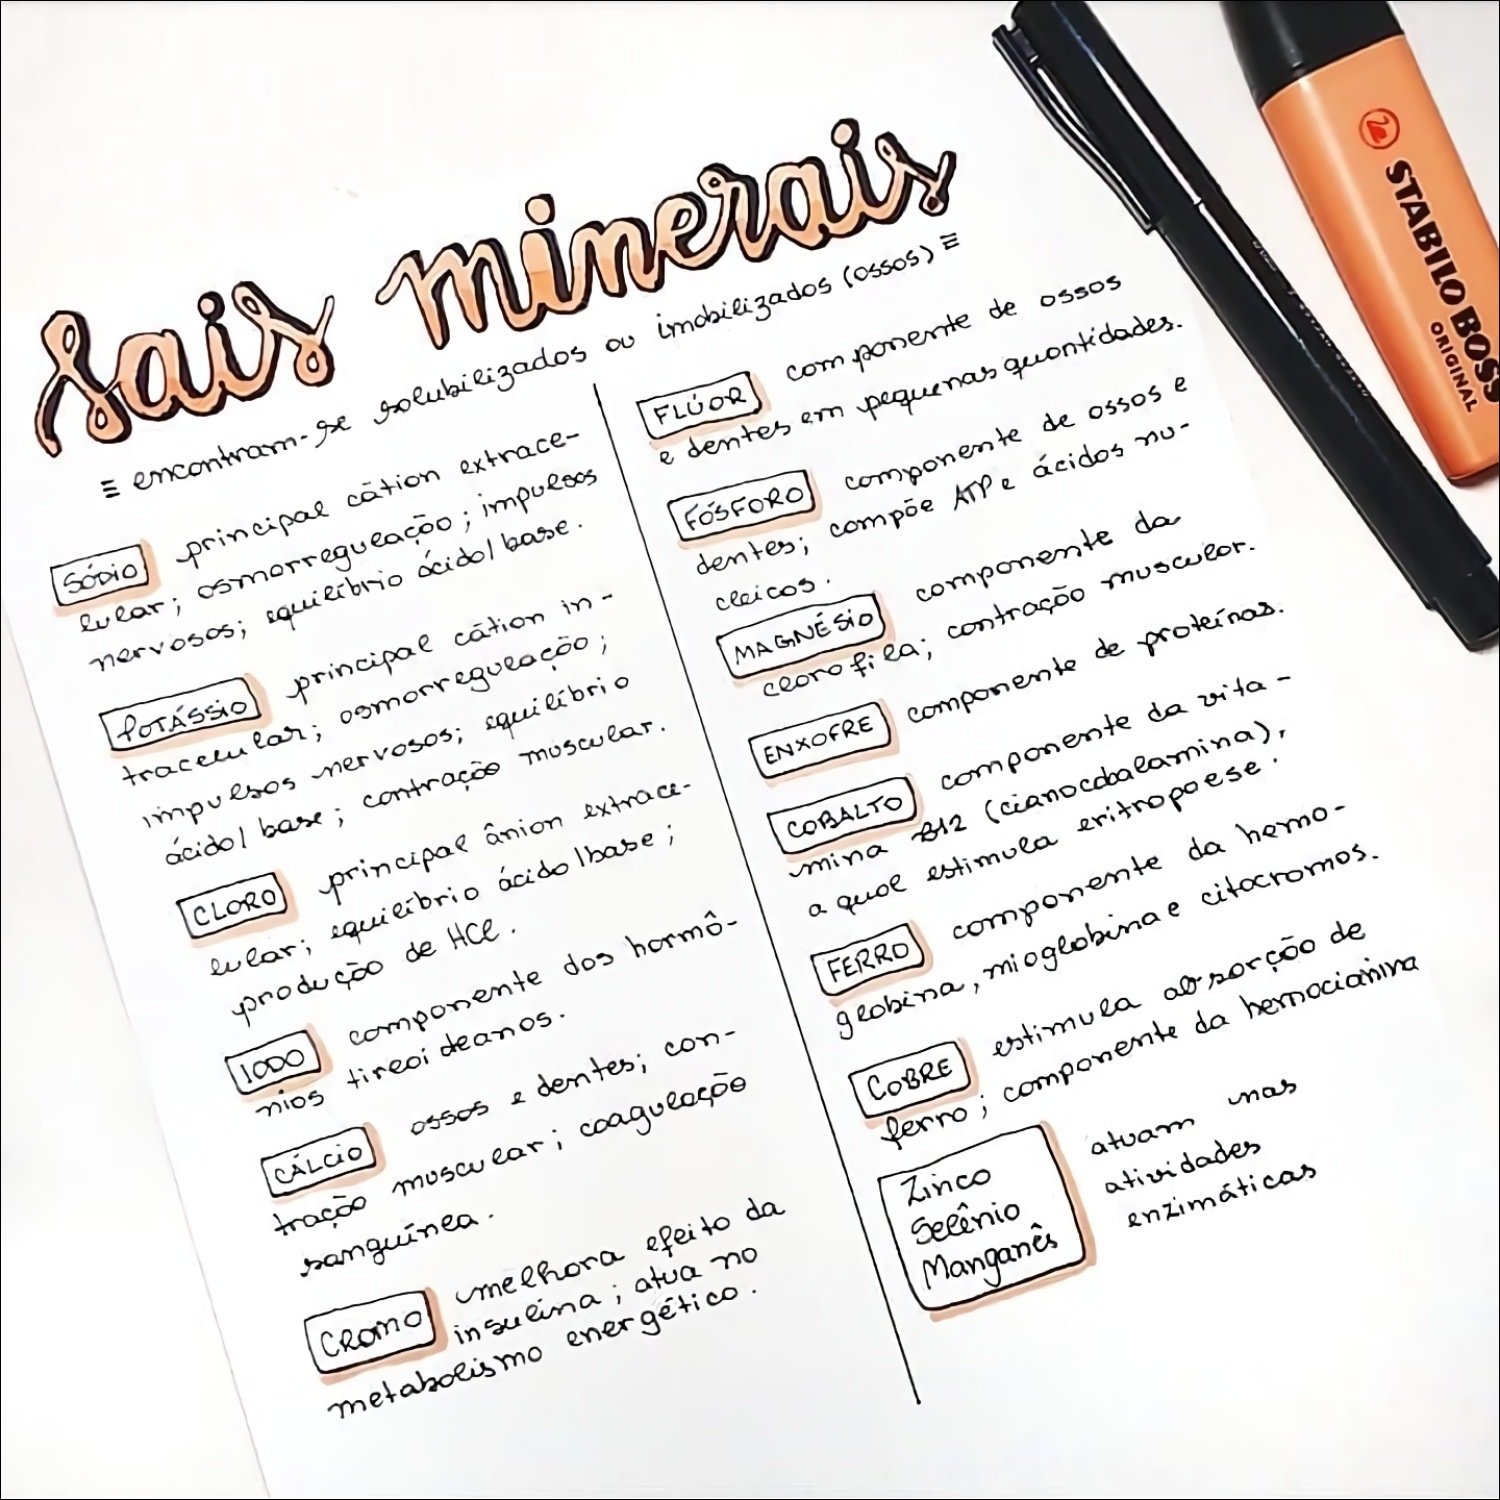 Sais minerais
≡ encontram-se solubilizados ou imobilizados (ossos) ≡
SÓDIO principal cátion extrace-
lular; osmorregulação; impulsos
nervosos; equilíbrio ácido/base.
POTÁSSIO principal cátion in-
tracelular; osmorregulação;
impulsos nervosos; equilíbrio
ácido/base; contração muscular.
CLORO principal ânion extrace-
lular; equilíbrio ácido/base;
produção de HCl.
IODO componente dos hormô-
nios tireoideanos.
CÁLCIO ossos e dentes; con-
tração muscular; coagulação
sanguínea.
CROMO melhora efeito da
insulina; atua no
metabolismo energético.
FLÚOR componente de ossos
e dentes em pequenas quantidades.
FÓSFORO componente de ossos e
dentes; compõe ATP e ácidos nu-
cleicos.
MAGNÉSIO componente da
clorofila; contração muscular.
ENXOFRE componente de proteínas.
COBALTO componente da vita-
mina B12 (cianocobalamina),
a qual estimula eritropoese.
FERRO componente da hemo-
globina, mioglobina e citocromos.
COBRE estimula absorção de
ferro; componente da hemocianina
Zinco
Selênio
Manganês
atuam nas
atividades
enzimáticas
STABILO BOSS
ORIGINAL